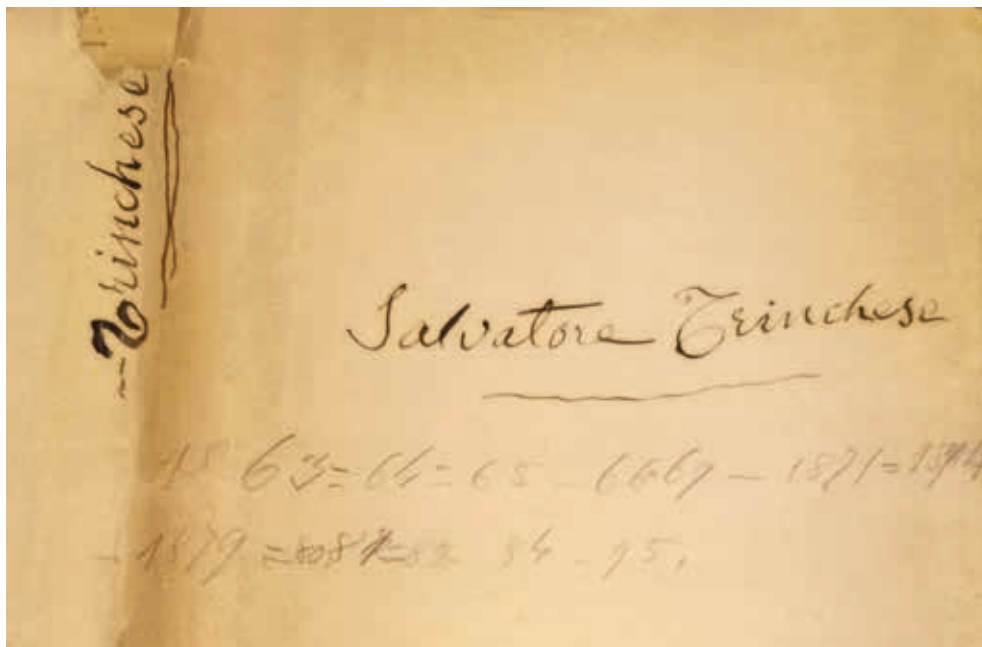 Trinchese
Salvatore Trinchese
1863=64=65-6667-1871=1874
-1879=8081=82 84-95.